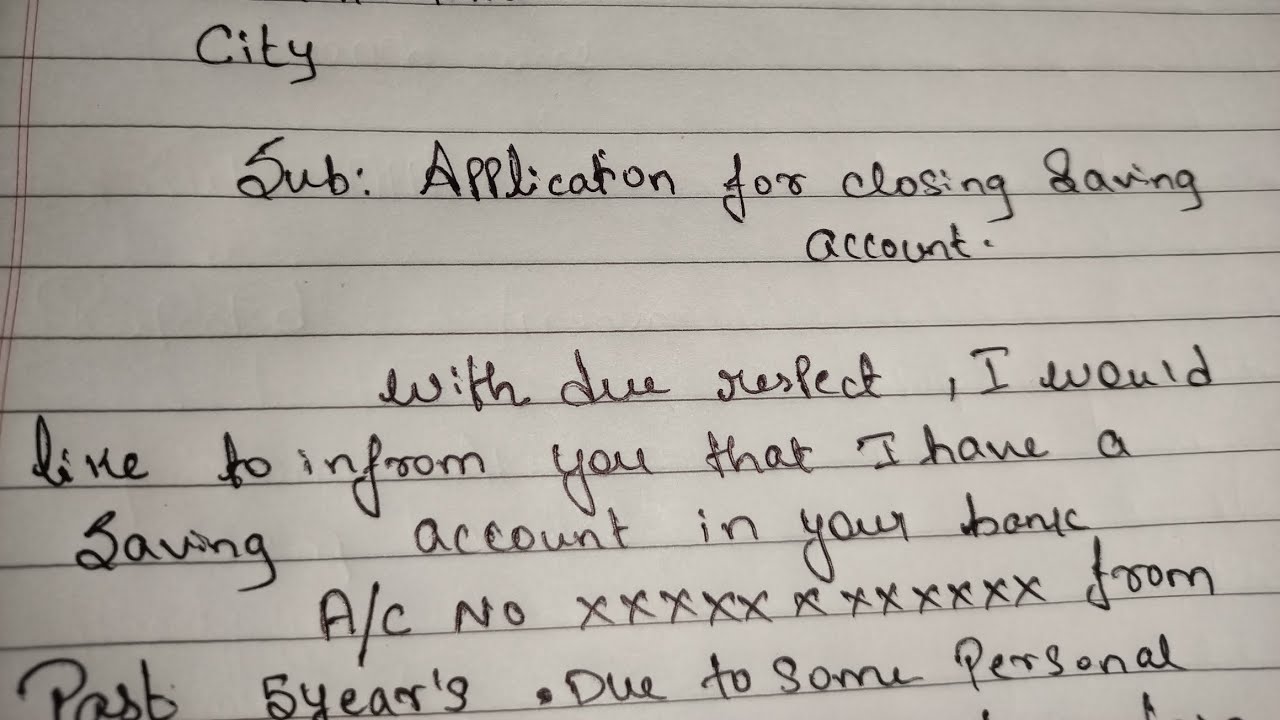 City
Sub: Application for closing Saving
account.
with due respect, I would
like to infrom you that I have a
Saving account in your bank
A/C No xxxxxxxxxxxxx from
Past 5year's . Due to some Personal